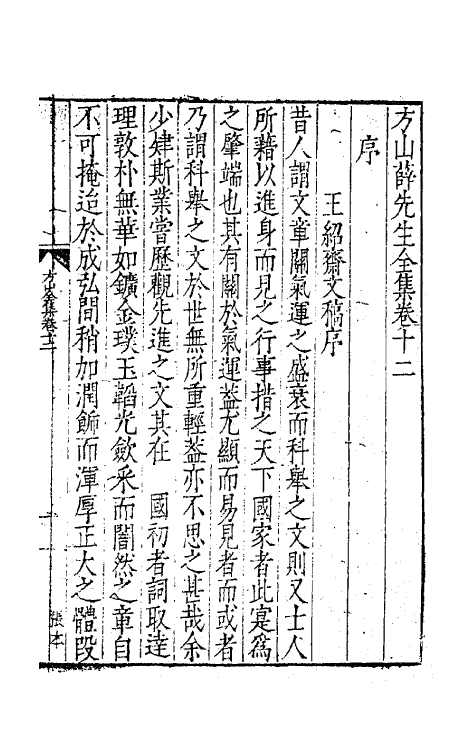 方山薛先生全集卷十二
序
王紹齋文稿序
昔人謂文章關氣運之盛衰而科舉之文則又士人
所藉以進身而見之行事措之天下國家者此寔爲
之肇端也其有關於氣運蓋尤顯而易見者而或者
乃謂科舉之文於世無所重輕蓋亦不思之甚哉余
少肄斯業嘗歷觀先進之文其在　國初者詞取達
理敦朴無華如鑛金璞玉韜光歛采而闇然之章自
不可掩迨於成弘間稍加潤飾而渾厚正大之體段
方山全集卷十二
一
張本